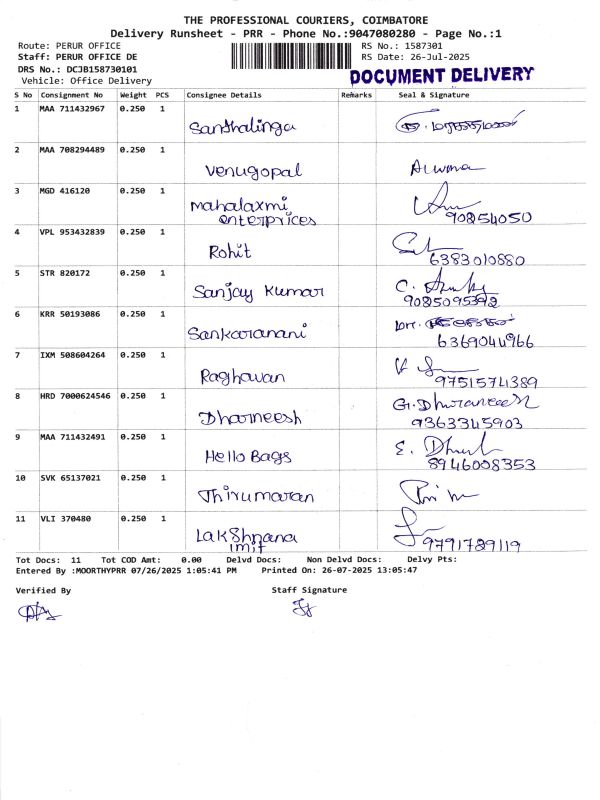 THE PROFESSIONAL COURIERS, COIMBATORE
Delivery Runsheet - PRR - Phone No.:9047080280 - Page No.:1
Route: PERUR OFFICE
RS No.: 1587301
Staff: PERUR OFFICE DE
RS Date: 26-Jul-2025
DRS No.: DCJB158730101
Vehicle: Office Delivery
DOCUMENT DELIVERY
S No Consignment No Weight PCS Consignee Details Remarks Seal & Signature
1 MAA 711432967 0.250 1
Santhalinga
2 MAA 708294489 0.250 1
Venugopal
3 MGD 416120 0.250 1
Mahalaxmi
enterprices 90854050
4 VPL 953432839 0.250 1
Rohit 6383010880
5 STR 820172 0.250 1
Sanjay Kumar
9085095392
6 KRR 50193086 0.250 1
Sankaranani 6369044966
7 IXM 508604264 0.250 1
Raghavan 9751574389
8 HRD 7000624546 0.250 1
Dharneesh 9363345903
9 MAA 711432491 0.250 1
Hello Bags 8946008353
10 SVK 65137021 0.250 1
Thirumaran
11 VLI 370480 0.250 1
Lakshmana 9791789119
Tot Docs: 11 Tot COD Amt: 0.00 Delvd Docs: Non Delvd Docs: Delvy Pts:
Entered By :MOORTHYPRR 07/26/2025 1:05:41 PM Printed On: 26-07-2025 13:05:47
Verified By Staff Signature